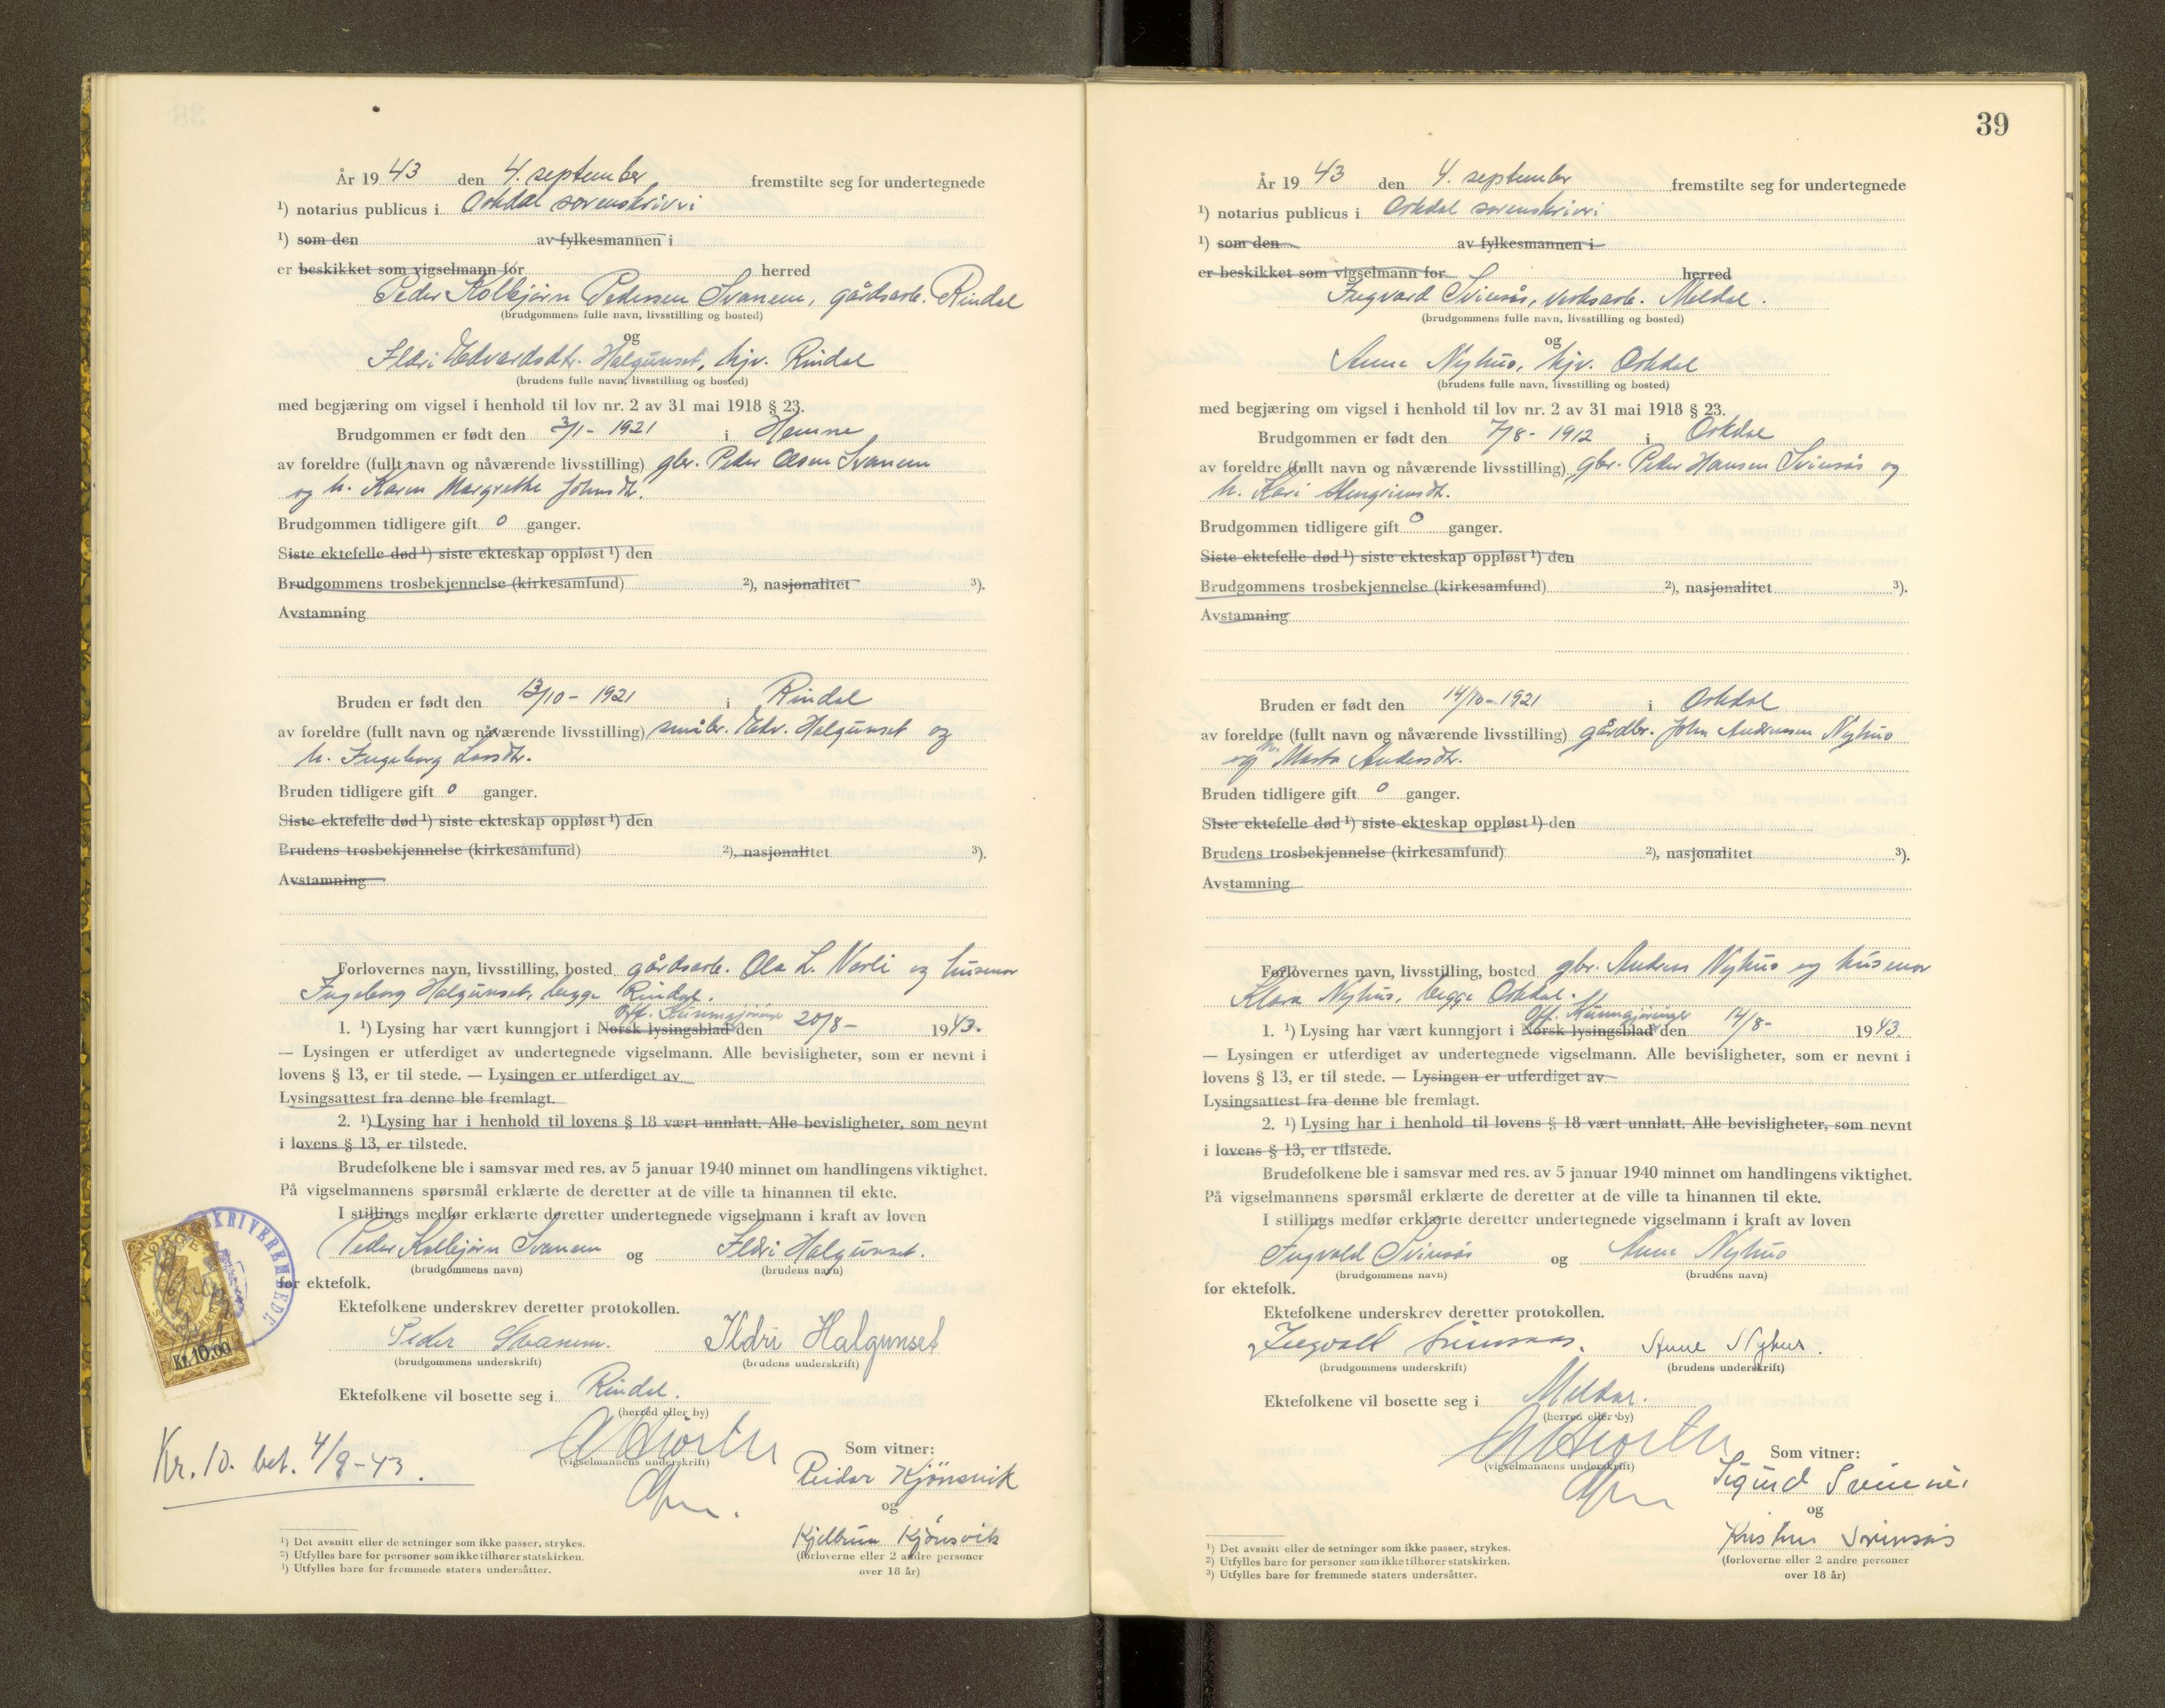 År 1943 den 4. september fremstilte seg for undertegnede
¹) notarius publicus i Orkdal sorenskriveri
¹) som den av fylkesmannen i
er beskikket som vigselmann for herred
Peder Kolbjørn Pedersen Svanem, gårdsarb. Rindal
(brudgommens fulle navn, livsstilling og bosted)
og
Ildri Edvardsdtr. Halgunset, hjv. Rindal
(brudens fulle navn, livsstilling og bosted)
med begjæring om vigsel i henhold til lov nr. 2 av 31 mai 1918 § 23.
Brudgommen er født den 3/1- 1921 i Hemne
av foreldre (fullt navn og nåværende livsstilling) gbr. Peder Olsen Svanem
og h. Karen Margrethe Johnsdtr.
Brudgommen tidligere gift 0 ganger.
Siste ektefelle død ¹) siste ekteskap oppløst ¹) den
Brudgommens trosbekjennelse (kirkesamfund) ²), nasjonalitet ³).
Avstamning
Bruden er født den 13/10- 1921 i Rindal
av foreldre (fullt navn og nåværende livsstilling) småbr. Edv. Halgunset og
h. Ingeborg Larsdtr.
Bruden tidligere gift 0 ganger.
Siste ektefelle død ¹) siste ekteskap oppløst ¹) den
Brudens trosbekjennelse (kirkesamfund) ²), nasjonalitet ³).
Avstamning
Forlovernes navn, livsstilling, bosted gårdsarb. Ola L. Norli og husmor
Ingeborg Halgunset, begge Rindal.
Off. Kunngjøringer
1. ¹) Lysing har vært kunngjort i Norsk lysingsblad den 20/8- 1943.
— Lysingen er utferdiget av undertegnede vigselmann. Alle bevisligheter, som er nevnt i
lovens § 13, er til stede. — Lysingen er utferdiget av
Lysingsattest fra denne ble fremlagt.
2. ¹) Lysing har i henhold til lovens § 18 vært unnlatt. Alle bevisligheter, som nevnt
i lovens § 13, er tilstede.
Brudefolkene ble i samsvar med res. av 5 januar 1940 minnet om handlingens viktighet.
På vigselmannens spørsmål erklærte de deretter at de ville ta hinannen til ekte.
I stillings medfør erklærte deretter undertegnede vigselmann i kraft av loven
Peder Kolbjørn Svanem og Ildri Halgunset.
(brudgommens navn) (brudens navn)
for ektefolk.
Ektefolkene underskrev deretter protokollen.
Peder Svanem. Ildri Halgunset
(brudgommens underskrift) (brudens underskrift)
Ektefolkene vil bosette seg i Rindal.
(herred eller by)
Som vitner:
(vigselmannens underskrift)
Reidar Kjönsvik
og
Kjönsvik
(forloverne eller 2 andre personer
over 18 år)
NORGE
Kr. 10.00
SKRIVEREN
Kr. 10. bet. 4/9-43.
¹) Det avsnitt eller de setninger som ikke passer, strykes.
²) Utfylles bare for personer som ikke tilhører statskirken.
³) Utfylles bare for fremmede staters undersåtter.
39
År 1943 den 4. september fremstilte seg for undertegnede
¹) notarius publicus i Orkdal sorenskriveri
¹) som den av fylkesmannen i
er beskikket som vigselmann for herred
Ingvard Svinsås, verksarb. Meldal.
(brudgommens fulle navn, livsstilling og bosted)
og
Anne Nyhus, hjv. Orkdal
(brudens fulle navn, livsstilling og bosted)
med begjæring om vigsel i henhold til lov nr. 2 av 31 mai 1918 § 23.
Brudgommen er født den 7/8- 1912 i Orkdal
av foreldre (fullt navn og nåværende livsstilling) gbr. Peder Hansen Svinsås og
h. Kari
Brudgommen tidligere gift 0 ganger.
Siste ektefelle død ¹) siste ekteskap oppløst ¹) den
Brudgommens trosbekjennelse (kirkesamfund) ²), nasjonalitet ³).
Avstamning
Bruden er født den 14/10-1921 i Orkdal
av foreldre (fullt navn og nåværende livsstilling) gårdbr. John Andersen Nyhus
og h. Marta Andersdtr.
Bruden tidligere gift 0 ganger.
Siste ektefelle død ¹) siste ekteskap oppløst ¹) den
Brudens trosbekjennelse (kirkesamfund) ²), nasjonalitet ³).
Avstamning
Forlovernes navn, livsstilling, bosted gbr. Anders Nyhus og husmor
Klara Nyhus, begge Orkdal.
Off. Kunngjøringer
1. ¹) Lysing har vært kunngjort i Norsk lysingsblad den 14/8- 1943.
— Lysingen er utferdiget av undertegnede vigselmann. Alle bevisligheter, som er nevnt i
lovens § 13, er til stede. — Lysingen er utferdiget av
Lysingsattest fra denne ble fremlagt.
2. ¹) Lysing har i henhold til lovens § 18 vært unnlatt. Alle bevisligheter, som nevnt
i lovens § 13, er tilstede.
Brudefolkene ble i samsvar med res. av 5 januar 1940 minnet om handlingens viktighet.
På vigselmannens spørsmål erklærte de deretter at de ville ta hinannen til ekte.
I stillings medfør erklærte deretter undertegnede vigselmann i kraft av loven
Ingvald Svinsås og Anne Nyhus
(brudgommens navn) (brudens navn)
for ektefolk.
Ektefolkene underskrev deretter protokollen.
Ingvald Svinsås. Anne Nyhus.
(brudgommens underskrift) (brudens underskrift)
Ektefolkene vil bosette seg i Meldal.
(herred eller by)
Som vitner:
(vigselmannens underskrift)
Sigurd
og
Svinsås
(forloverne eller 2 andre personer
over 18 år)
¹) Det avsnitt eller de setninger som ikke passer, strykes.
²) Utfylles bare for personer som ikke tilhører statskirken.
³) Utfylles bare for fremmede staters undersåtter.